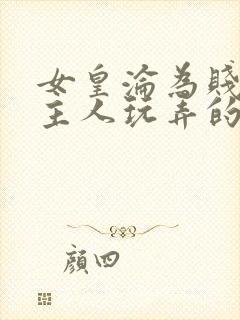 女皇淪為賤
主人玩弄的
顏四